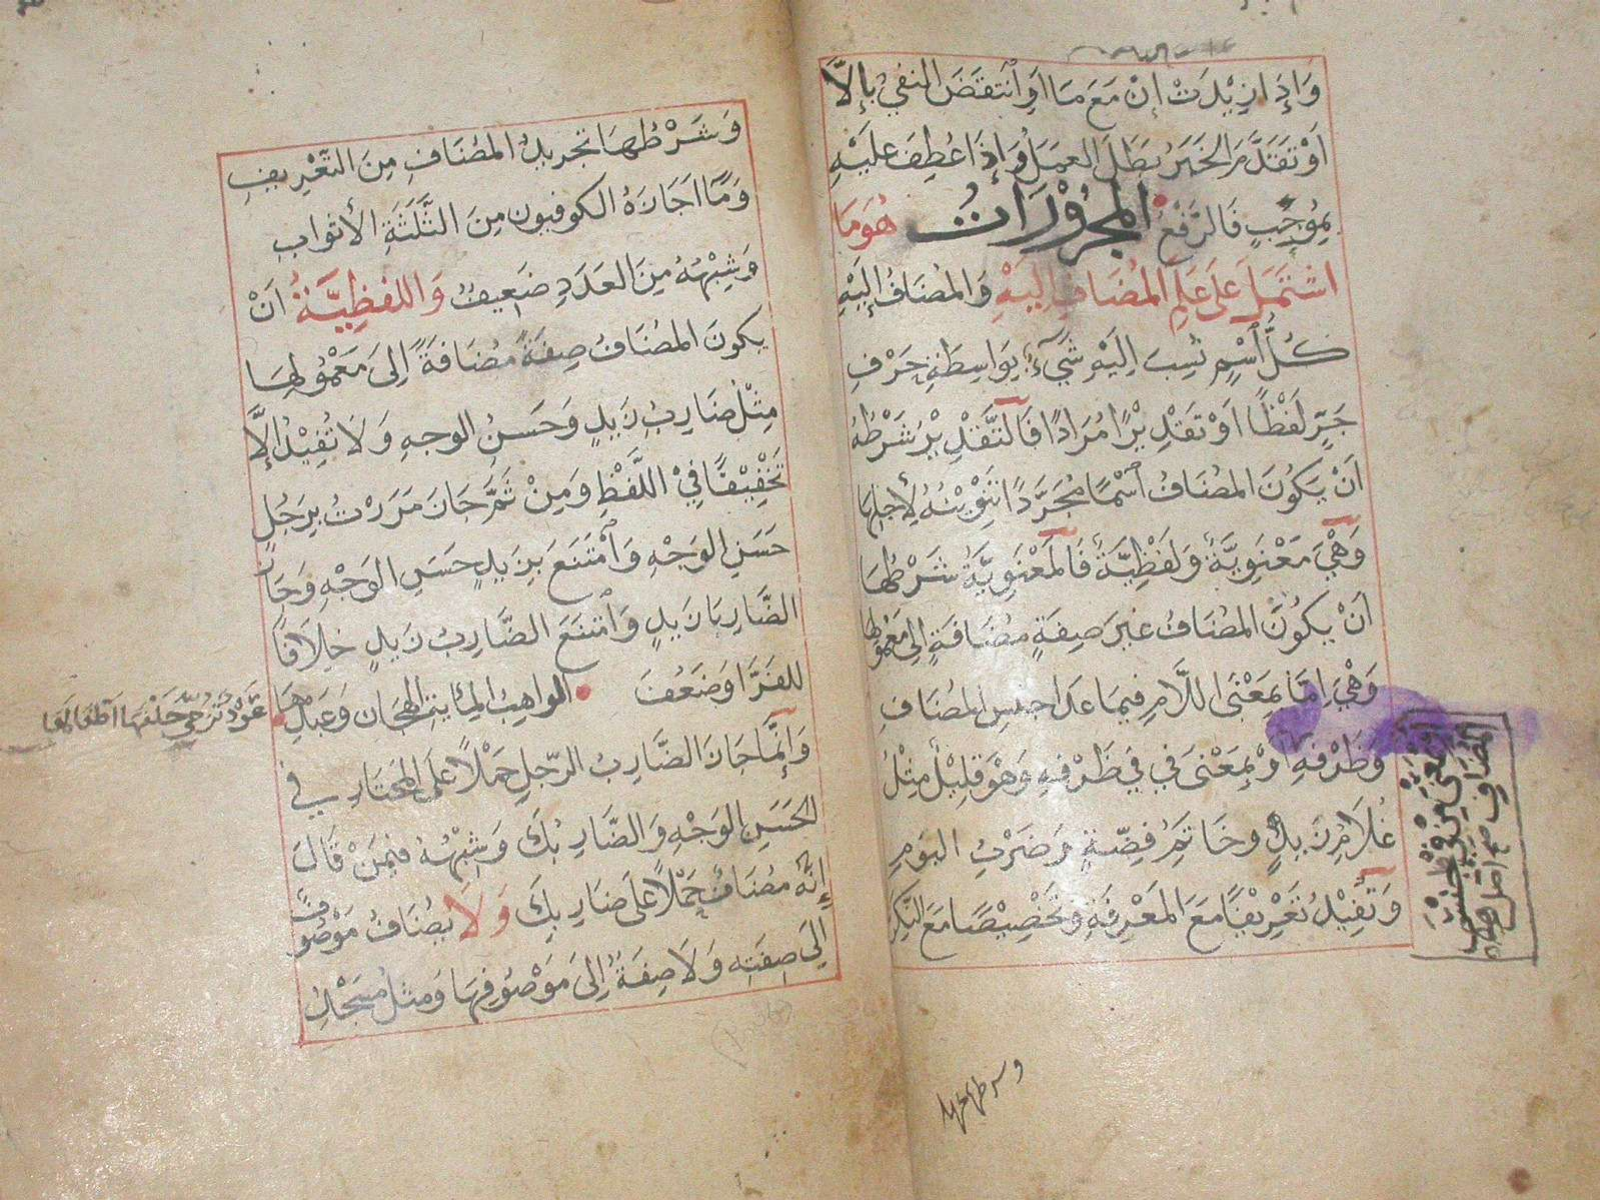 وَإِذَا زِيْدَتْ إِنْ مَعَ مَا اَوِ ٱنْتَقَضَ النفيُ بِإلَّا
اَوْ تَقَدَّمَ الخَبَرُ بَطَلَ العَمَلُ وَإِذَا عُطِفَ عَلَيْهِ
بِمُوجَبٍ فَالرَّفْعُ المجْرُوْرَاتُ هُوَ مَا
اشتَمَلَ عَلَى عَلَمِ المُضَافِ اِلَيْهِ وَالمُضَافُ اِلَيْهِ
كُلُّ ٱسْمٍ نُسِبَ اِلَيْهِ شَيْءٌ بِوَاسِطَةِ حَرْفِ
جَرٍّ لَفْظًا اَوْ تَقْدِيْرًا مُرَادًا فَالتَّقْدِيْرُ شَرْطُهُ
اَنْ يَكُوْنَ المُضَافُ ٱسْمًا مُجَرَّدًا تَنْوِيْنُهُ لِأَجْلِهَا
وَهْيَ مَعْنَوِيَّةٌ وَلَفْظِيَّةٌ فَالمَعْنَوِيَّةُ شَرْطُهَا
اَنْ يَكُوْنَ المُضَافُ غيرَ صِفَةٍ مُضَافَةٍ اِلَى مَعْمُوْلِهَا
وَهْيَ اِمَّا بِمَعْنَى اللَّامِ فِيمَا عَدَا جنسِ المُضَافِ
وَظَرْفِهِ اَوْ بِمَعْنَى فِي فِي ظَرْفِهِ وَهْوَ قَلِيْلٌ مِثْلُ
غُلَامُ زَيْدٍ وخَاتَمُ فِضَّةٍ وَضَرْبُ اليَوْمِ
وَتُفِيْدُ تَعْرِيْفًا مَعَ المَعْرِفَةِ وَتَخْصِيْصًا مَعَ النَّكِرَ
المُضَافِ صح اصل
وشرطها
وَشَرْطُهَا تجريدُ المُضَافِ مِنَ التَّعْرِيفِ
وَمَا اَجَازَهُ الكوفيون مِنَ الثَّلَثَةِ الأثوابِ
وَشِبْهُهُ مِنَ العَدَدِ ضَعِيفٌ وَاللفظِيَّةُ اَنْ
يكونَ المُضَافُ صِفَةً مُضَافَةً اِلَى مَعْمُوْلِهَا
مِثْلُ ضَارِبُ زَيدٍ وَحَسَنُ الوجهِ وَلَا تُفِيْدُ اِلَّا
تَخْفِيْفًا فِيْ اللَّفْظِ وَمِنْ ثَمَّ جَازَ مَرَرْتُ بِرَجُلٍ
حَسَنِ الوَجْهِ وَٱمْتَنَعَ بِزَيدٍ حَسَنِ الوَجْهِ وَجَازَ
الضَّارِبَا زَيدٍ وَٱمْتَنَعَ الضَّارِبُ زَيدٍ خِلَافًا
للفَرَّا وَضَعُفَ الواهِبُ المِائَةِ الهِجَانِ وَعَبدِهَا
عُوْذًا تُزَجِّي خَلْفَهَا اَطْفَالَهَا
وَاِنَّمَا جَازَ الضَّارِبُ الرّجلِ حَمْلًا عَلَى المُخْتَارِ فِي
الحَسَنِ الوَجْهِ وَالضَّارِبُكَ وَشِبْهُهُ فِيْمَنْ قَالَ
إنَّهُ مُضَافٌ حَمْلًا عَلَى ضَارِبِكَ وَلَا يُضَافُ مَوْصُوْفٌ
اِلَى صِفَتِهِ وَلَا صِفَةٌ اِلَى مَوْصُوْفِهَا وَمثلُ مَسْجِدُ